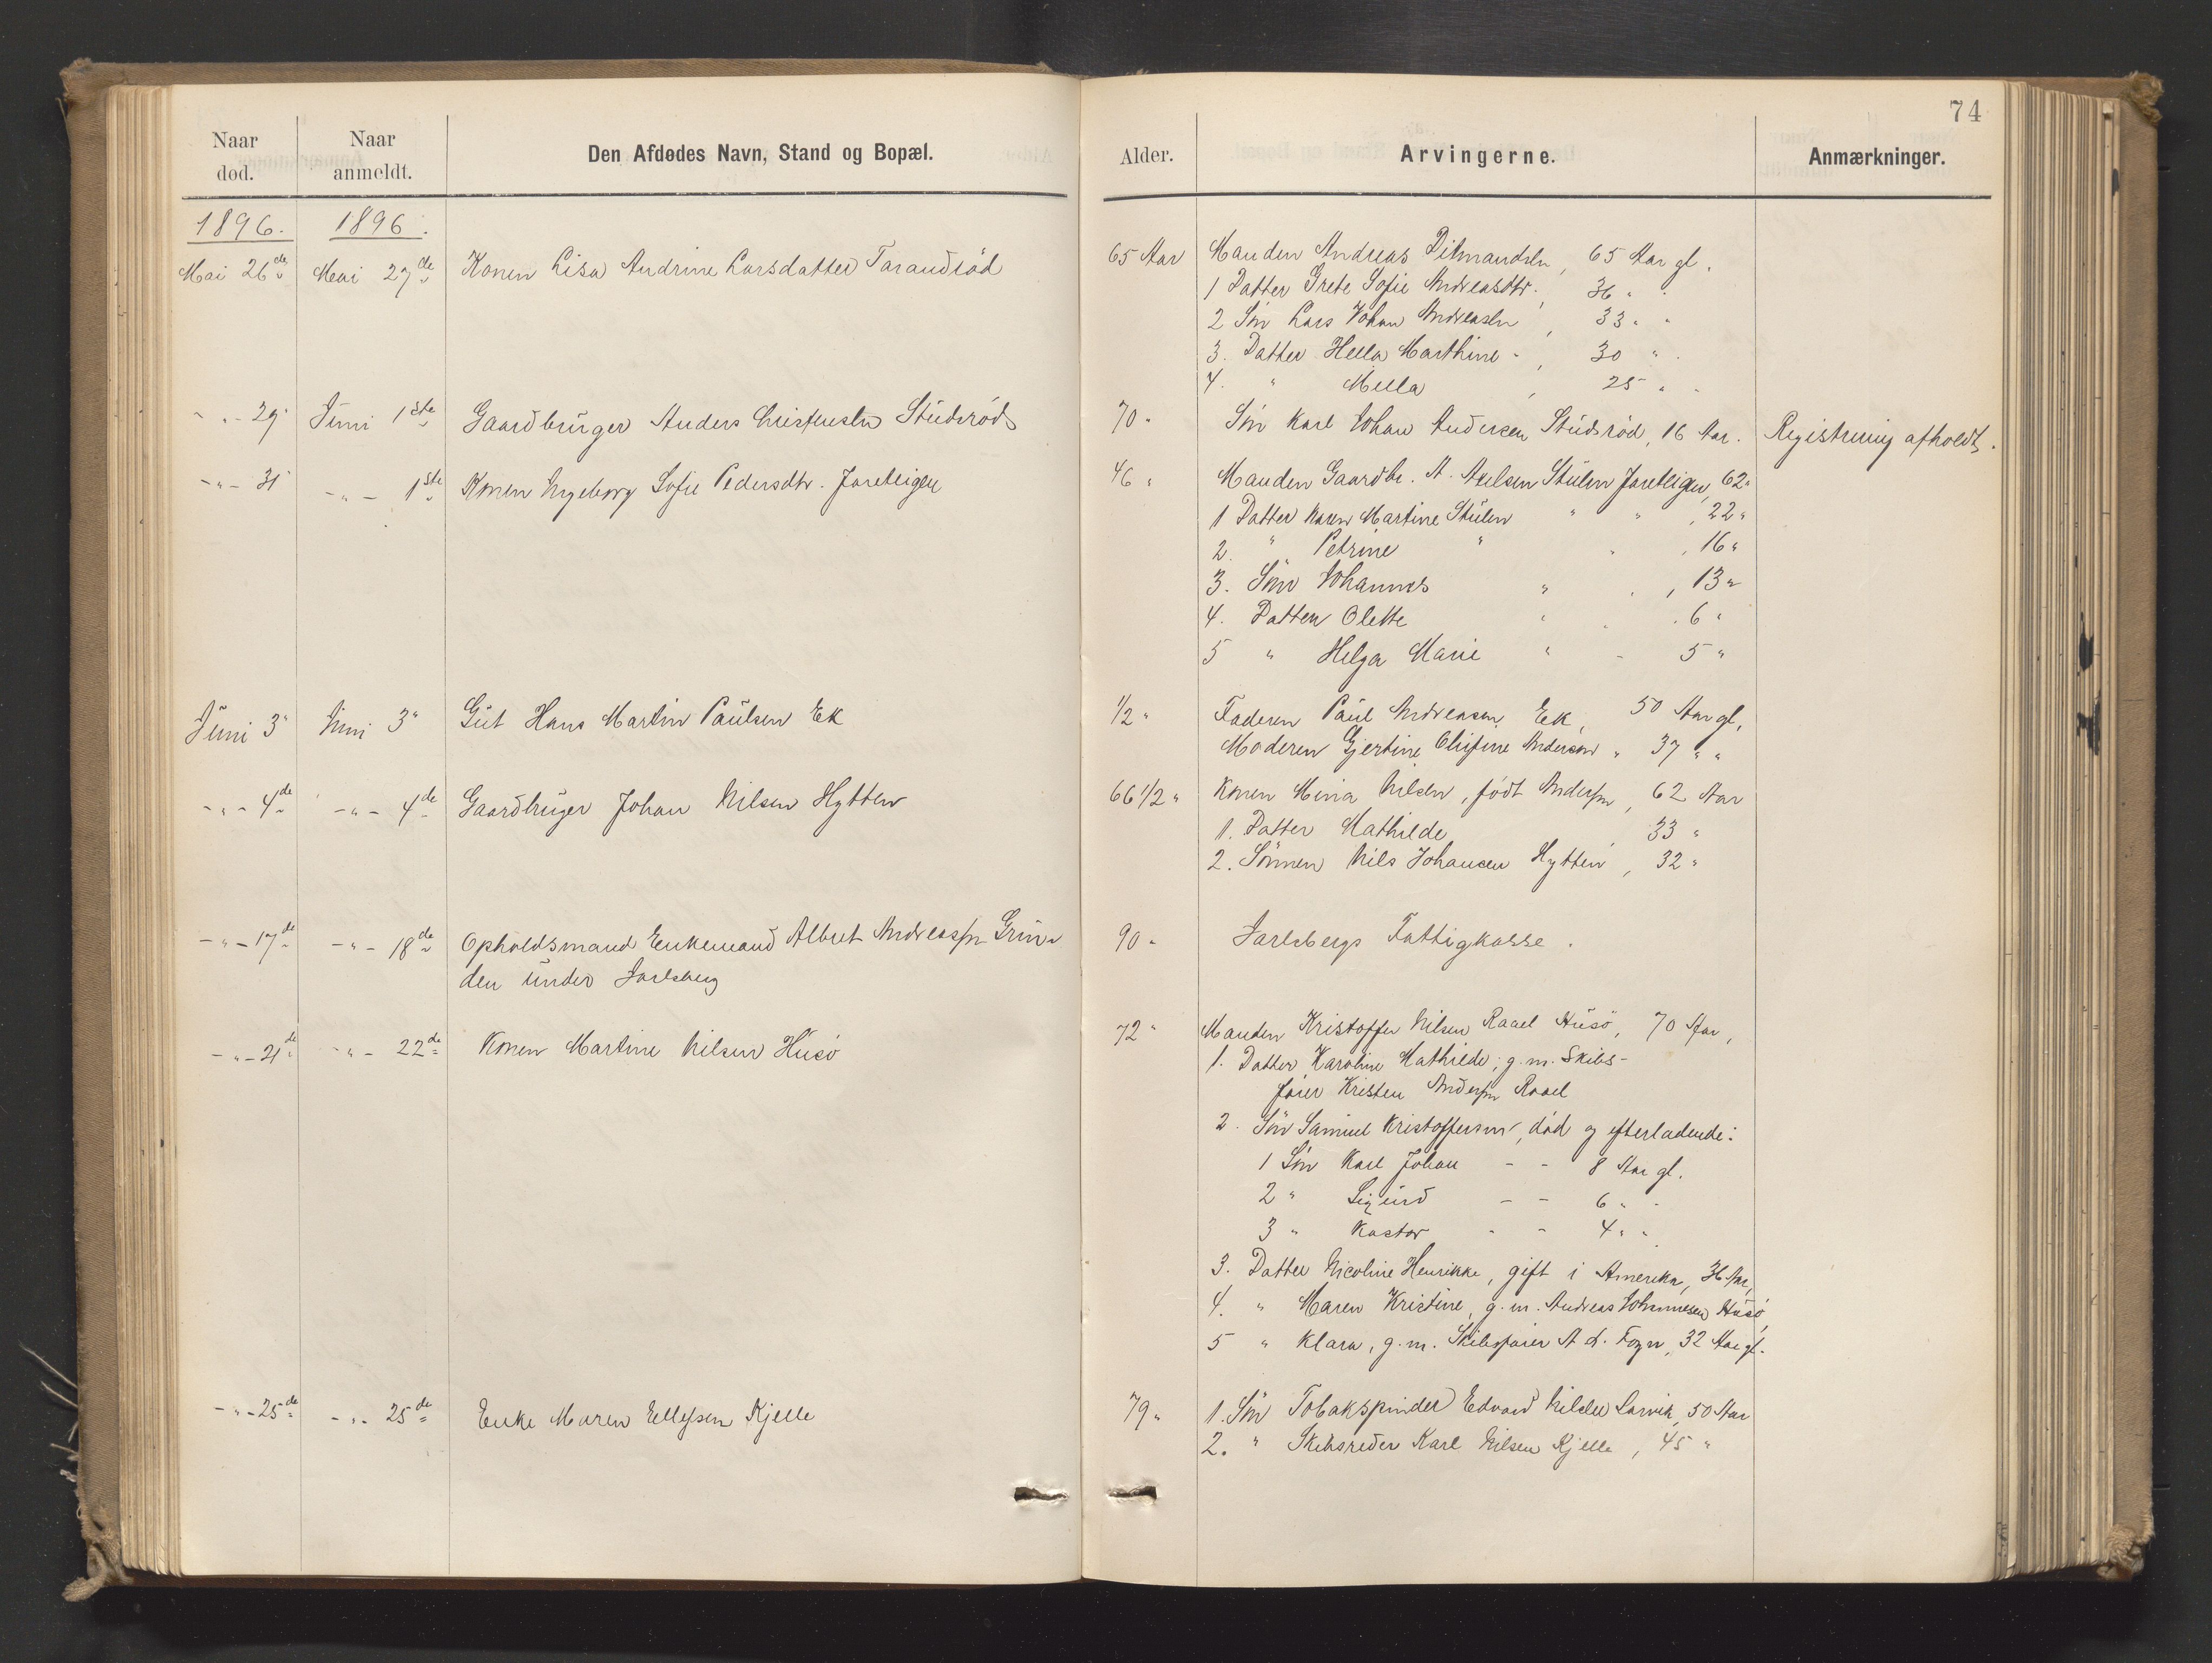 74
Naar død.
Naar anmeldt.
Den Afdødes Navn, Stand og Bopæl.
Alder.
Arvingerne.
Anmærkninger.
1896. 1896.
Mai 26de Mai 27de Konen Lisa Andrine Larsdatter Tarandrød 65 Aar Manden Andreas Ditmandsen, 65 Aar gl.
1 Datter Grete Sofie Andreasdtr. 36 " "
2 Søn Lars Johan Andreasen, 33 " "
3. Datter Hella Marthine - , 30 " "
4. " Mella , 25 " -
- " - 29 Juni 1ste Gaardbruger Anders Christensen Studsrød 70 " Søn Karl Johan Andersen Studsrød, 16 Aar. Registrering afholdt.
- " - 31 - " - 1ste Konen Ingeborg Sofie Pedersdtr. Jareteigen 46 " Manden Gaardbr. A. Axelsen Stulen Jareteigen, 62 "
1 Datter Karen Martine Stulen " " , 22 "
2. " Petrine " " , 16 "
3. Søn Johannes " " , 13 "
4. Datter Olette " " . 6 "
5 " Helga Marie " - 5 "
Juni 3 " Juni 3 " Gut Hans Martin Paulsen Ek 1/2 " Faderen Paul Andreasen Ek, 50 Aar gl,
Moderen Gjertine Andersen " 37 " "
- " - 4de - " - 4de Gaardbruger Johan Nilsen Hytten 66 1/2 " Konen Mina Nilsen, født Andersen, 62 Aar
1. Datter Mathilde , 33 "
2. Sønnen Nils Johansen Hytten, 32 "
- " - 17de - " - 18de Opholdsmand Enkemand Albret Andreassen Grin-
den under Jarlsberg 90 " Jarlsbergs Fattigkasse.
- " - 21de - " - 22de Konen Martine Nilsen Husø 72 " Manden Kristoffer Nilsen Rael Husø, 70 Aar,
1. Datter Karoline Mathilde, g. m. Skibs-
fører Kristen Andersen Rael
2. Søn Samuel Kristoffersen, død og efterladende:
1 Søn Karl Johan - - 8 Aar gl.
2 " Sigurd - - 6 " -
3 " Kastor - - 4 " "
3. Datter Nicoline Henrikke, gift i Amerika, 36 Aar,
4. " Maren Kristine, g. m. Andreas Johannesen Husø,
5 " Klara, g. m. Skibsfører A. L. Fogn, 32 Aar gl.
- " - 25de - " - 25de Enke Maren Ellefsen Kjelle 79 " 1. Søn Tobakspinder Edvard Nilsen Larvik, 50 Aar
2. " Skibsreder Karl Nilsen Kjelle, 45 "